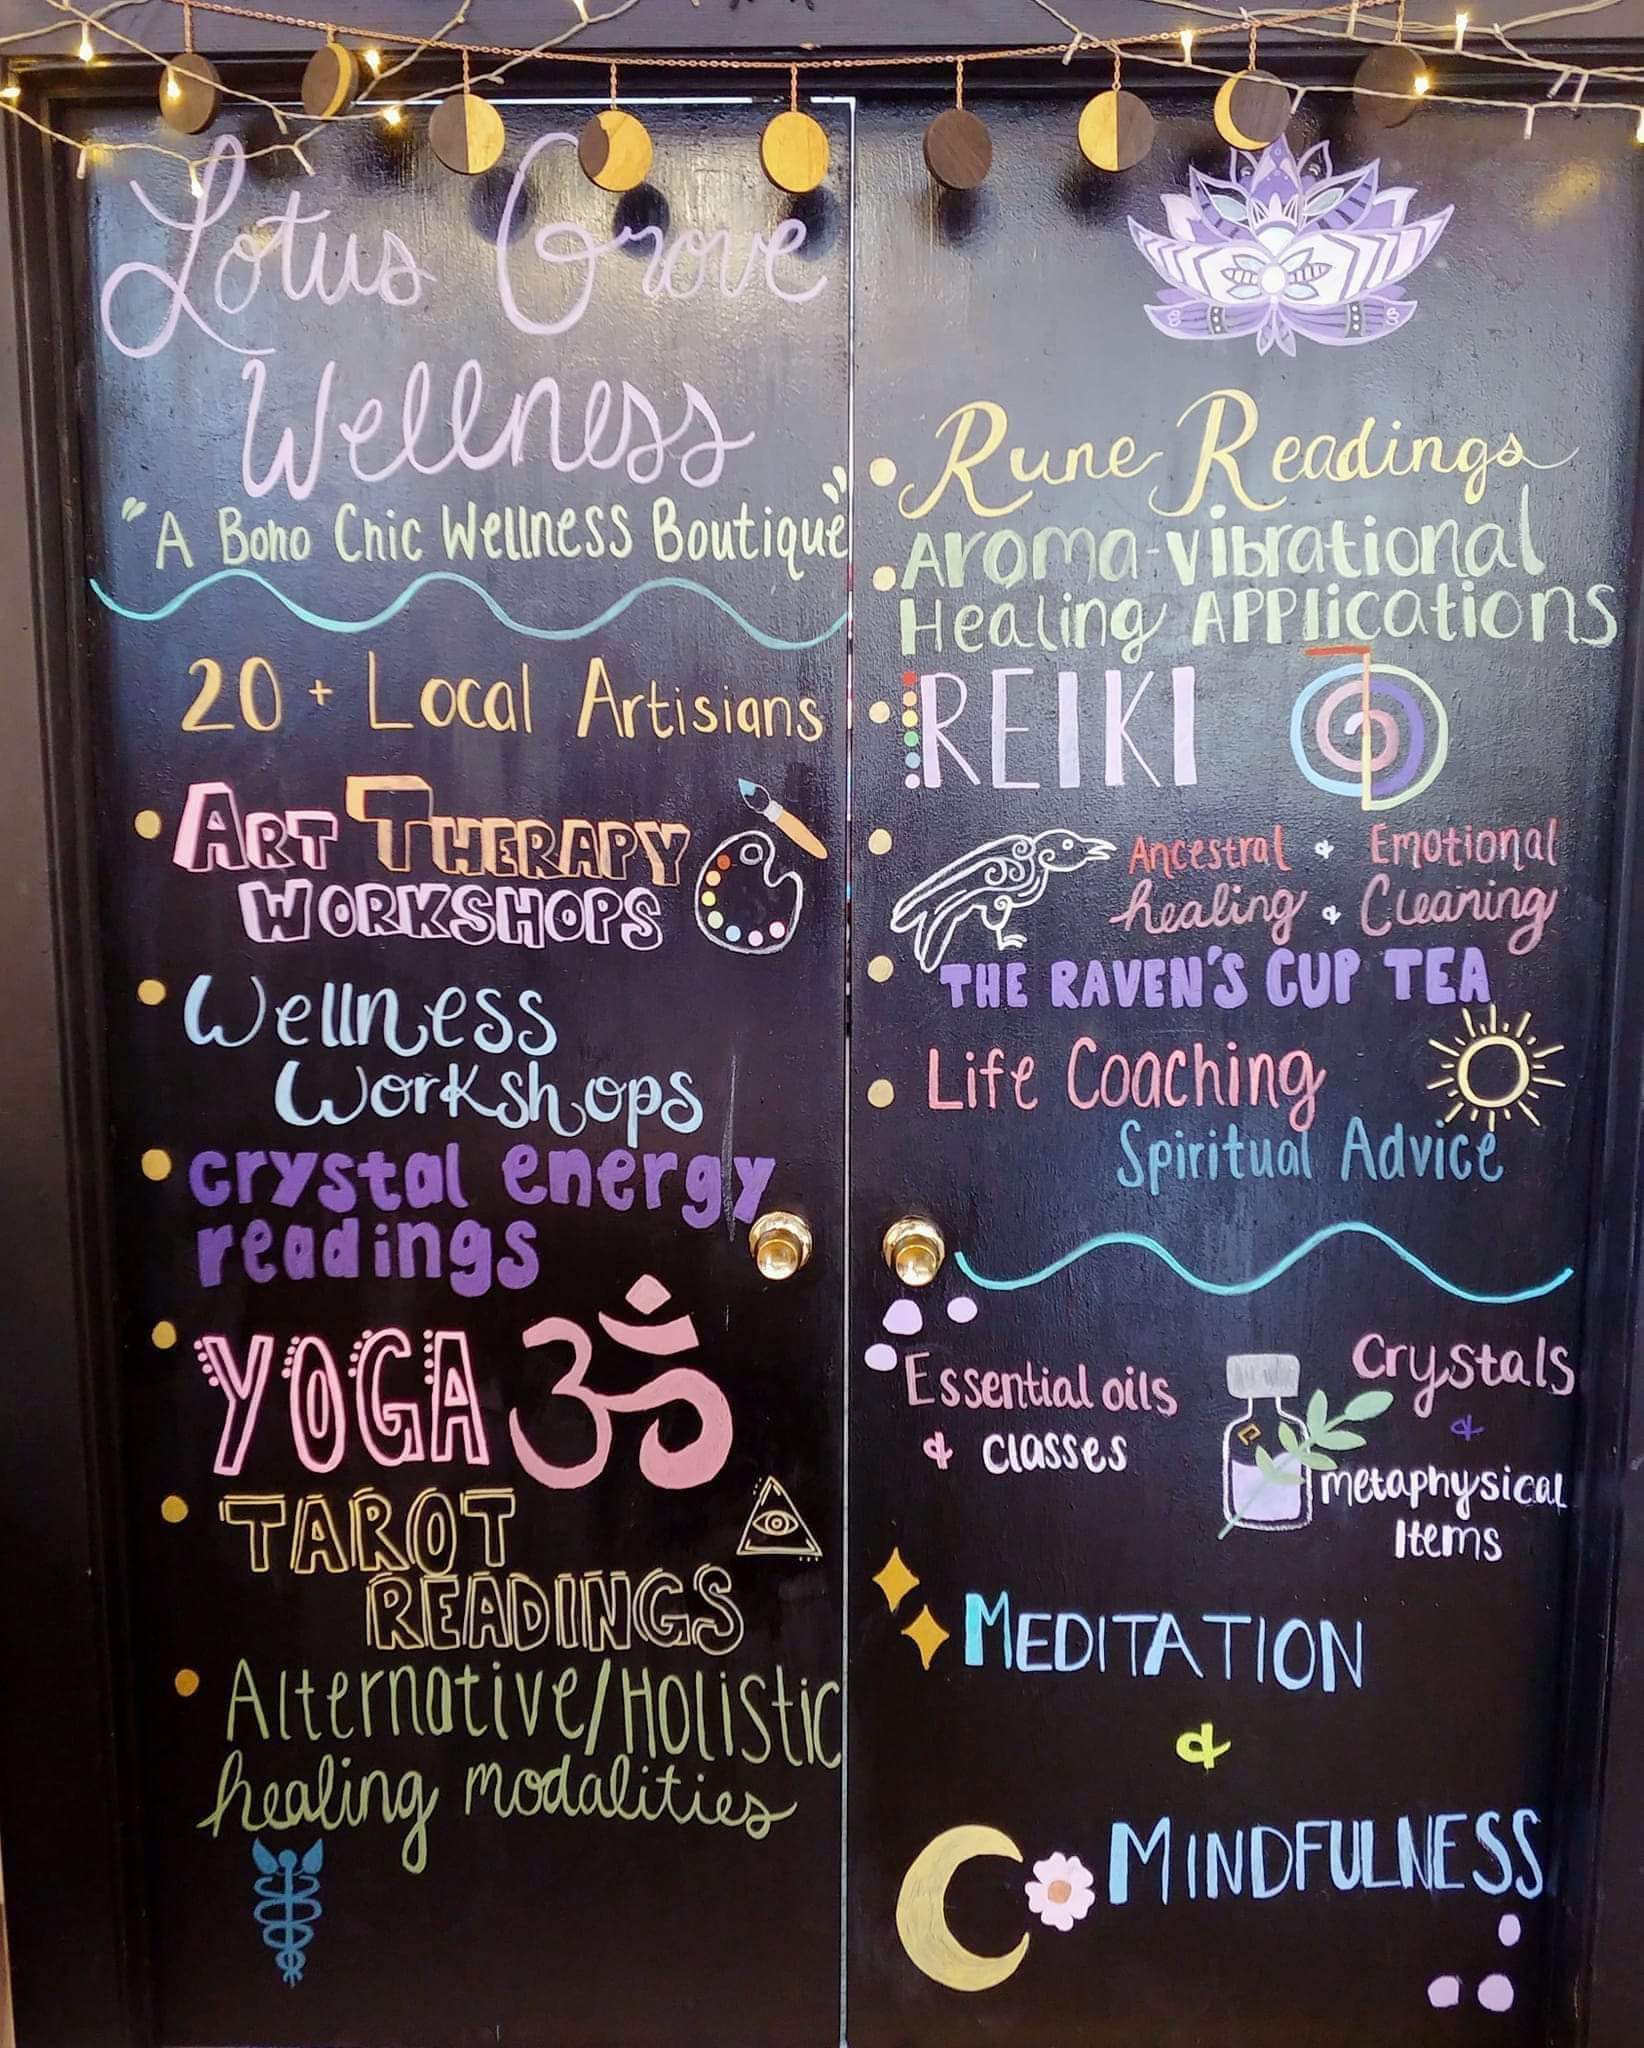 Lotus Grove
Wellness
"A Boho Chic Wellness Boutique"
20 + Local Artisians
Art Therapy
Workshops
Wellness
Workshops
crystal energy
readings
YOGA ॐ
TAROT
READINGS
Alternative/Holistic
healing modalities
Rune Readings
Aroma-vibrational
Healing Applications
REIKI
Ancestral & Emotional
healing & Cleaning
THE RAVEN'S CUP TEA
Life Coaching
Spiritual Advice
Essential oils
& classes
Crystals
&
metaphysical
Items
MEDITATION
&
MINDFULNESS